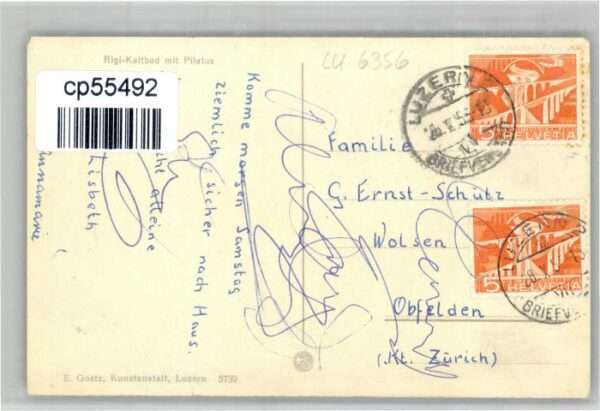 Rigi-Kaltbad mit Pilatus
LU 6356
cp55492
Komme morgen Samstag
ziemlich sicher nach Haus.
alleine
Lisbeth
Annamarie
Familie
G. Ernst-Schütz
Wolsen
Obfelden
(Kt. Zürich)
LUZERN
BRIEFVERSAND
HELVETIA
5
HELVETIA
LUZERN 2
BRIEFVE
E. Goetz, Kunstanstalt, Luzern 5739